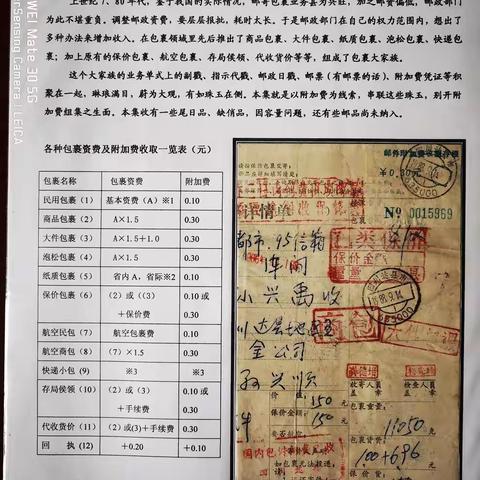 上世纪7、80年代,鉴于我国的实际情况,邮寄包裹业务甚为兴旺,加之邮资偏低,邮政部门
为此不堪重负。调整邮政资费,要层层报批,耗时太长。于是邮政部门在自己的权力范围内,想出了
多种办法来增加收入。在包裹领域里先后推出了商品包裹、大件包裹、纸质包裹、泡松包裹、快递包
裹;加上原有的保价包裹、航空包裹、存局侯领、代收货价等等,组成了包裹大家族。
这个大家族的业务单式上的副戳、指示代戳、邮政日戳、邮票(有邮票的话)、附加费凭证等积
聚在一起,琳琅满目,蔚为大观,有如珠玉在侧。本集就是以附加费为线索,串联这些珠玉,别开附
加费组集之生面。本集收有一些尾日品、缺俏品,因容量问题,还有些邮品尚未纳入。
各种包裹资费及附加费收取一览表(元)
包裹名称 包裹资费 附加费
民用包裹(1) 基本资费(A)※1 0.10
商品包裹(2) A×1.5 0.30
大件包裹(3) A×1.5+1.0 0.30
泡松包裹(4) A×1.5 0.30
纸质包裹(5) 省内A,省际※2 0.10
保价包裹(6) (2)或((3) 0.10 或
+保价费 0.30
航空民包(7) 航空包裹费 0.10
航空商包(8) (7)×1.5 0.30
快递小包(9) ※3 ※3
存局侯领(10) (2)或(3) 0.10 或
+手续费 0.30
代收货价(11) (2)或(3)+手续费 0.30
回 执 (12) +0.20 +0.10
邮件附加费收据存根
¥0.30元
详情单
№ 0015969
都市.95信箱
保价金额
重量
小兴禹 收
635000
商包
川达县地
金公司
孙兴顺
价值: 150 元
保价金额: 150 元
收寄人员
盖章
检查人员
盖章
包裹重量:
11050 克
包裹资费:
100+696
国内包
如包裹无法投递,
HUAWEI Mate 30 5G
SuperSensing Camera | LEICA